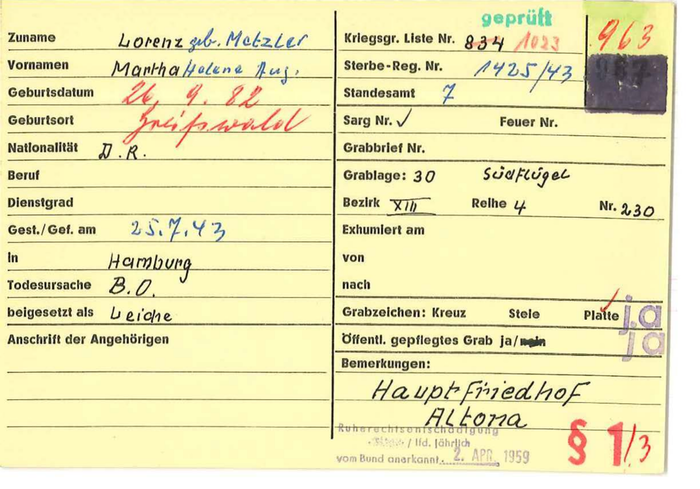 geprüft
Zuname Lorenz geb. Metzler
Vornamen Martha Helene Aug.
Geburtsdatum 26. 9. 82
Geburtsort Greifswald
Nationalität D.R.
Beruf
Dienstgrad
Gest./Gef. am 25.7.43
in Hamburg
Todesursache B.O.
beigesetzt als Leiche
Anschrift der Angehörigen
Kriegsgr. Liste Nr. 834 1023
963
Sterbe-Reg. Nr. 1425/43
967
Standesamt 7
Sarg Nr. ✓ Feuer Nr.
Grabbrief Nr.
Grablage: 30 Südflügel
Bezirk XIII Reihe 4 Nr. 230
Exhumiert am
von
nach
Grabzeichen: Kreuz Stele Platte ja
Öffentl. gepflegtes Grab ja/nein ja
Bemerkungen:
Hauptfriedhof
Altona
Ruherechtsentschädigung
/ lfd. jährlich
vom Bund anerkannt 2. APR. 1959
§ 1/3